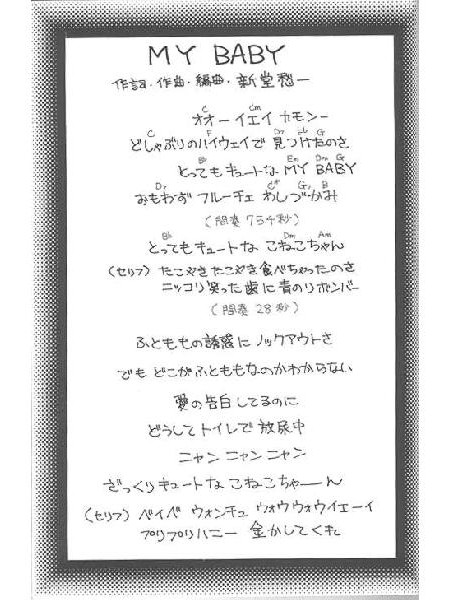 MY BABY
作詞・作曲・編曲・新堂愁一
C Cm
オオーイエイ カモンー
C F Dm G
どしゃぶりのハイウェイで 見つけたのさ
B♭ Em Dm G
とってもキュートな MY BABY
Dr C# Gr B
おもわず フルーチェ わしづかみ
(間奏 754秒)
B♭ Dm Am
とってもキュートな こねこちゃん
(セリフ) たこやきたこやき食べちゃったのさ
ニッコリ笑った歯に青のりボンバー
(間奏 28秒)
ふとももの誘惑に ノックアウトさ
でも どこがふとももなのかわからない
愛の告白してるのに
どうしてトイレで 放尿中
ニャン ニャン ニャン
ざっくりキュートな こねこちゃーん
(セリフ) ベイベ ウォンチュ ウォウウォウイェーイ
プリプリハニー 金かしてくれ